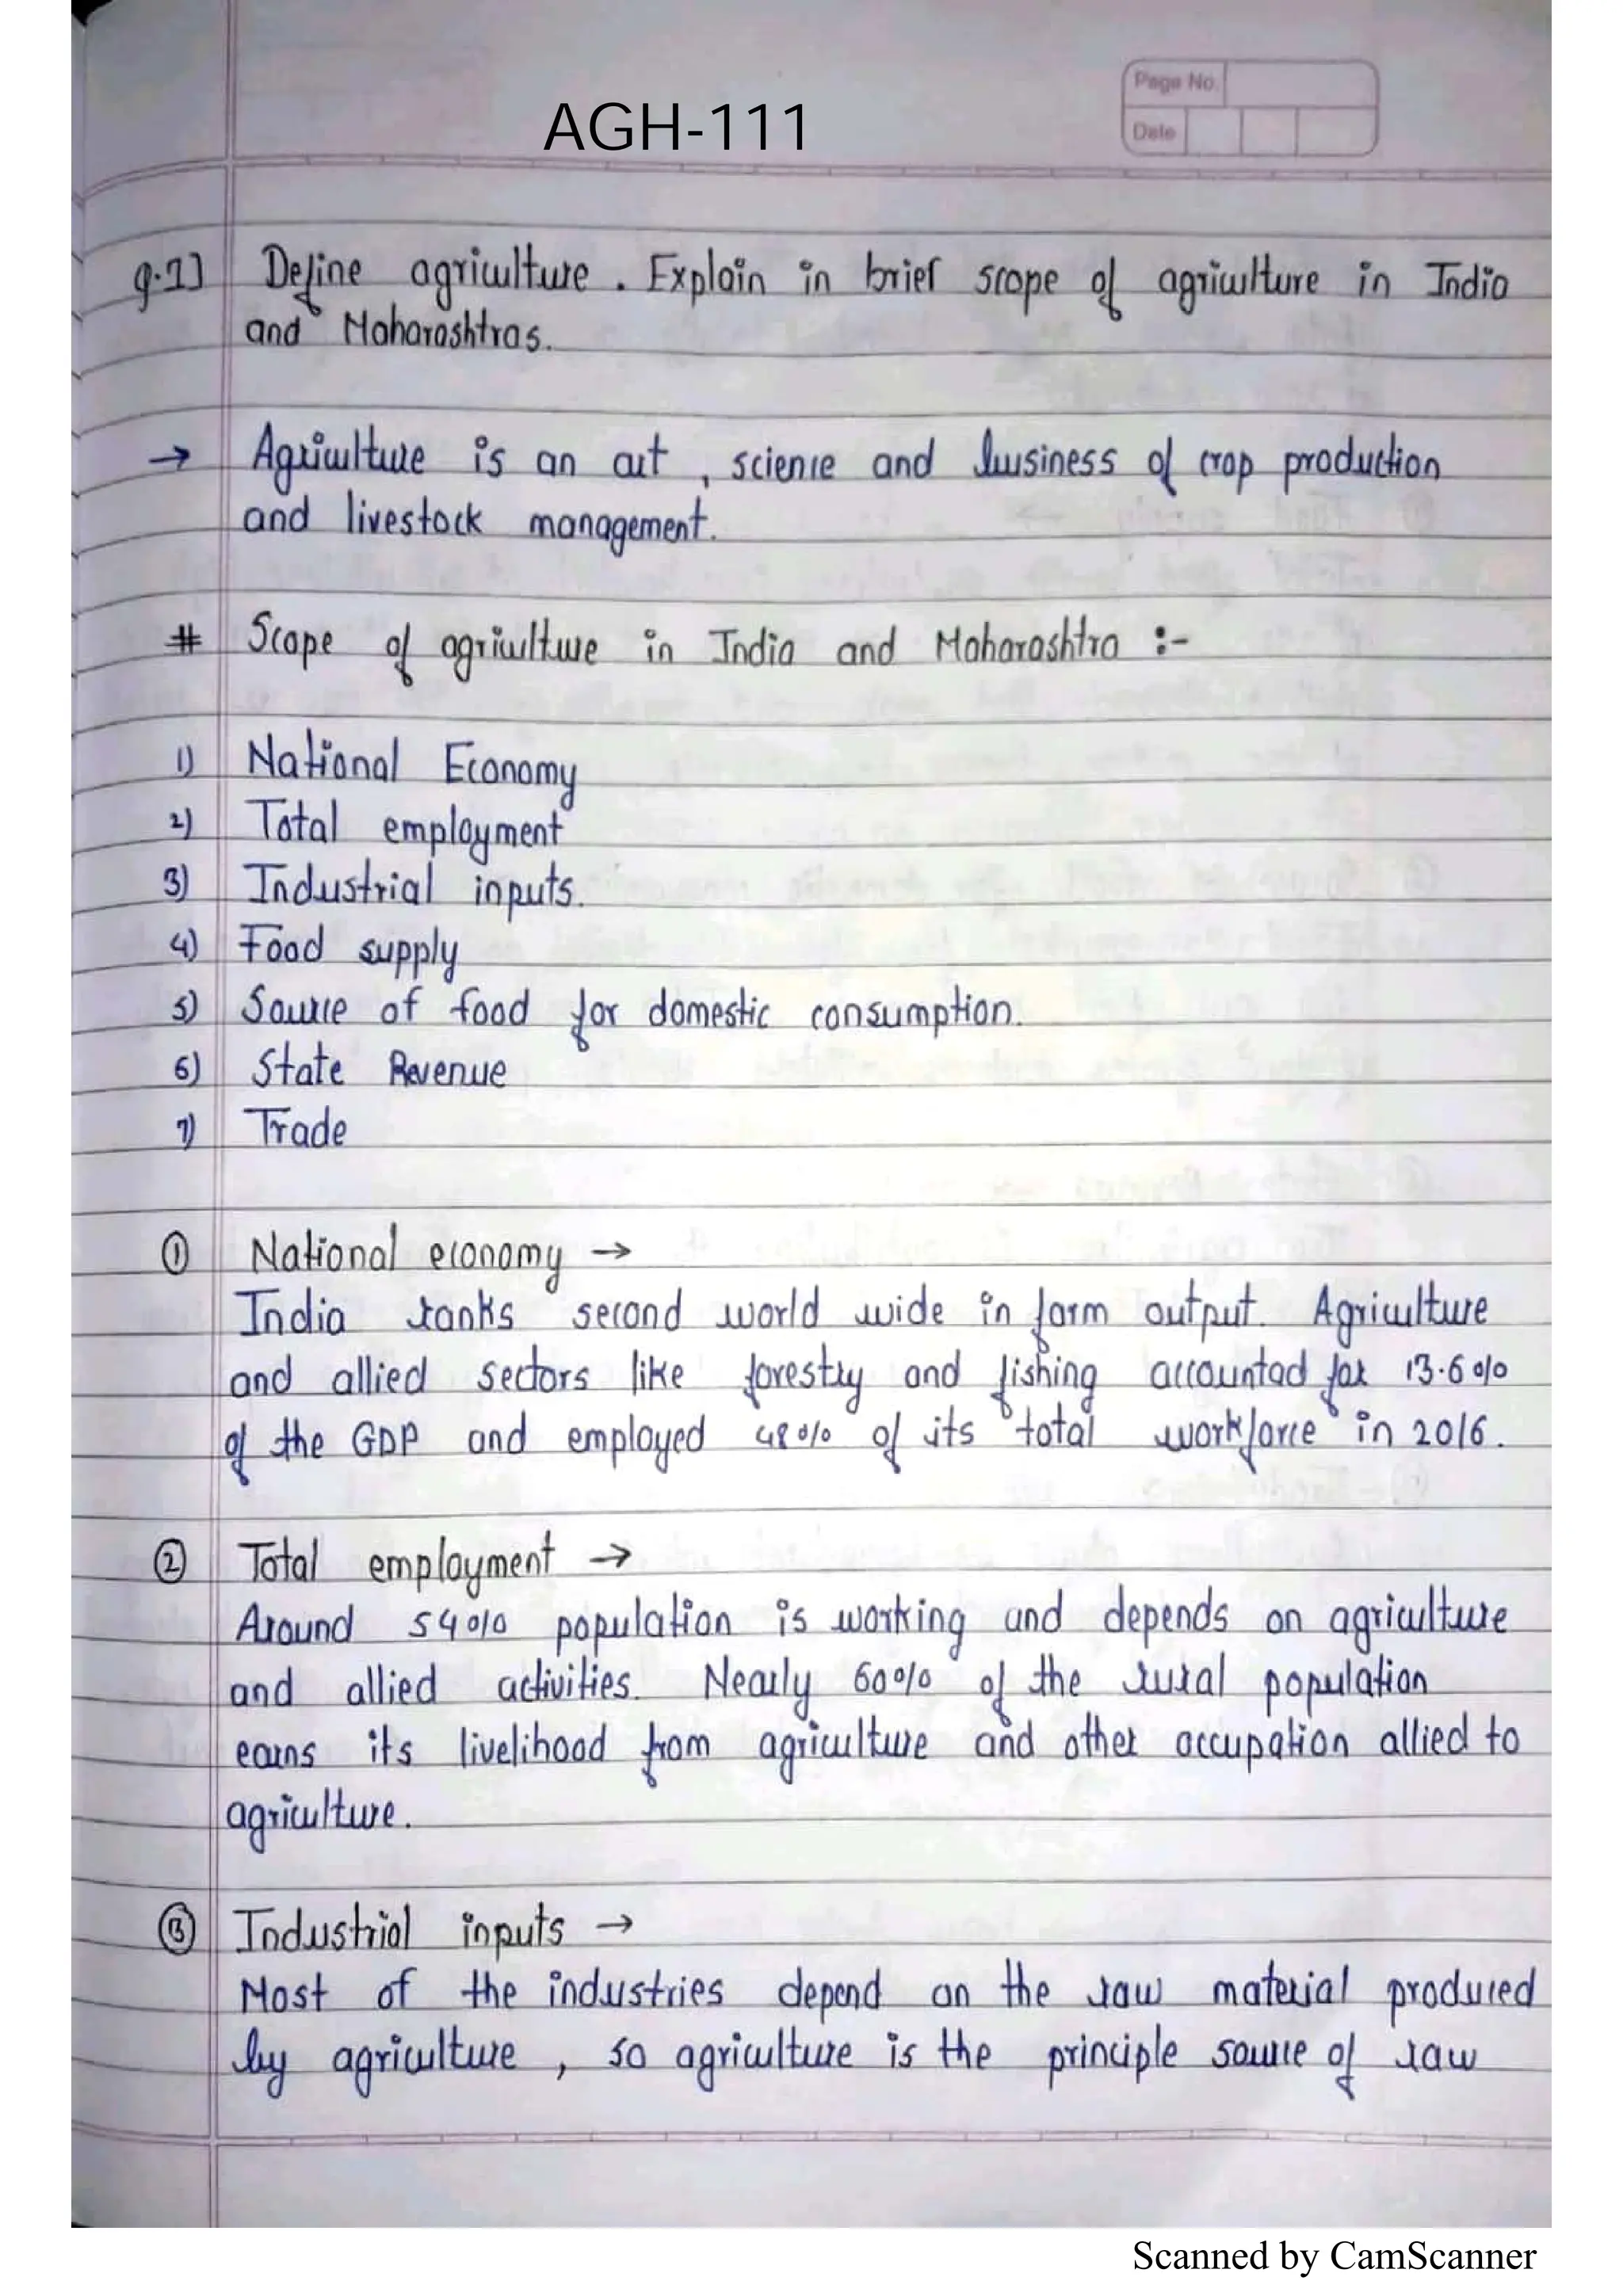 AGH-111
Page No.
Date
Q.1] Define agriculture. Explain in brief scope of agriculture in India
and Maharashtras.
→ Agriculture is an art, science and business of crop production
and livestock management.
# Scope of agriculture in India and Maharashtra :-
1) National Economy
2) Total employment
3) Industrial inputs.
4) Food supply
5) Source of food for domestic consumption.
6) State Revenue
7) Trade
① National economy →
India ranks second world wide in farm output. Agriculture
and allied sectors like forestry and fishing accountad for 13.6%
of the GDP and employed 48% of its total workforce in 2016.
② Total employment →
Around 54% population is working and depends on agriculture
and allied activities. Nearly 60% of the rural population
earns its livelihood from agriculture and other occupation allied to
agriculture.
③ Industrial inputs →
Most of the industries depend on the raw material produced
by agriculture, so agriculture is the principle source of raw
Scanned by CamScanner